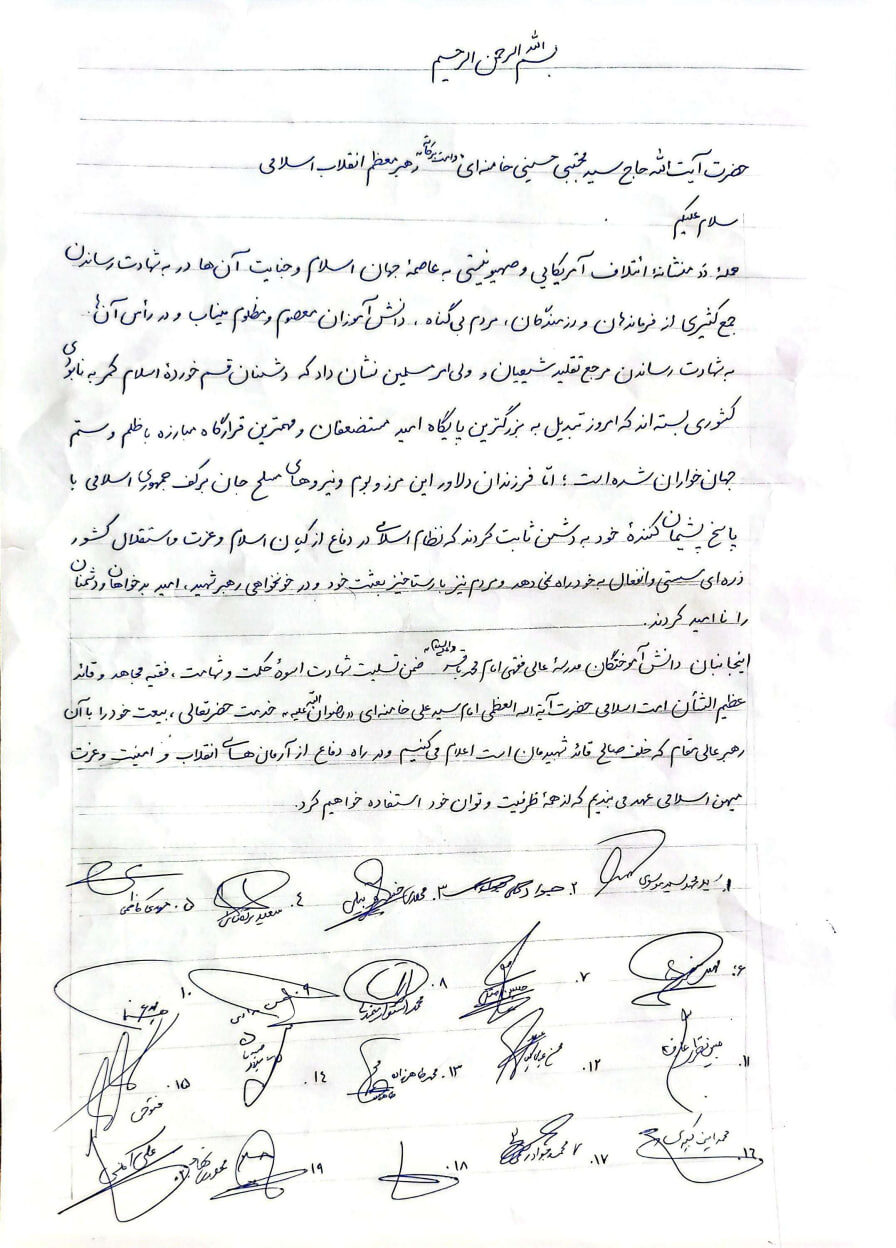 بسم الله الرحمن الرحیم
حضرت آیت الله حاج سید مجتبی حسینی خامنه‌ای دامت برکاته رهبر معظم انقلاب اسلامی
سلام علیکم
حملهٔ ددمنشانهٔ ائتلاف آمریکایی و صهیونیستی به عاصمهٔ جهان اسلام و جنایت آن‌ها در به شهادت رساندن
جمع کثیری از فرماندهان و رزمندگان، مردم بی‌گناه، دانش‌آموزان معصوم و مظلوم میناب و در رأس آن‌ها
به شهادت رساندن مرجع تقلید شیعیان و ولی امر مسلمین نشان داد که دشمنان قسم خوردهٔ اسلام کمر به نابودی
کشوری بسته‌اند که امروز تبدیل به بزرگترین پایگاه امید مستضعفان و مهمترین قرارگاه مبارزه با ظلم و ستم
جهان‌خواران شده است؛ امّا فرزندان دلاور این مرز و بوم و نیروهای مسلح جان برکف جمهوری اسلامی با
پاسخ پشیمان کنندهٔ خود به دشمن ثابت کردند که نظام اسلامی در دفاع از کیان اسلام و عزت و استقلال کشور
ذره‌ای سستی و انفعال به خود راه نمی‌دهد و مردم نیز با رستاخیز بعثت خود و در خونخواهی رهبر شهید، امید بدخواهان و دشمنان
را ناامید کردند.
اینجانبان دانش‌آموختگان مدرسهٔ عالی فقهی امام محمد باقر ضمن تسلیت شهادت اسوهٔ حکمت و شهامت، فقیه مجاهد و قائد
عظیم الشأن امت اسلامی حضرت آیة الله العظمی امام سید علی خامنه‌ای «رضوان الله علیه» به خدمت حضرتعالی، بیعت خود را با آن
رهبر عالی‌مقام که خلف صالح قائد شهیدمان است اعلام می‌کنیم و در راه دفاع از آرمان‌های انقلاب و امنیت و عزت
میهن اسلامی عهد می‌بندیم که از همهٔ ظرفیت و توان خود استفاده خواهیم کرد.
۱. سید محمد موسوی ۲. جواد ۳. ۴. سعید ۵. مهدی کاظمی
۶. ۷. حسین ۸. محمد ۹. ۱۰.
۱۱. ۱۲. ۱۳. محمد طاهرزاده ۱۴. ۱۵.
۱۶. محمد امین ۱۷. محمد جواد ۱۸. ۱۹. ۲۰. علی